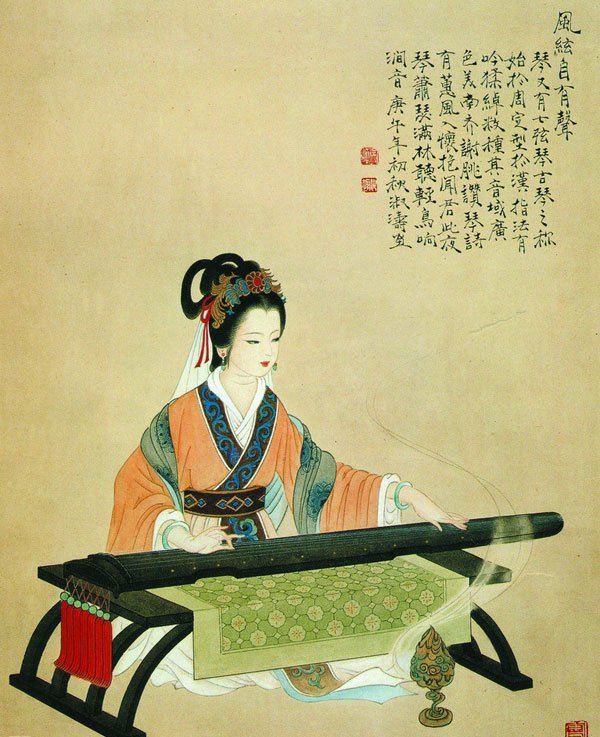 風絃自有聲
琴又有七弦琴古琴之称
始扵周定型扵漢指法有
吟猱綽数種其音域廣
色美南齐謝朓讚琴詩
有蕙風入懷抱闻君此夜
琴蕭瑟滿林聽輕鳥响
澗音庚午年初秋淑濤画